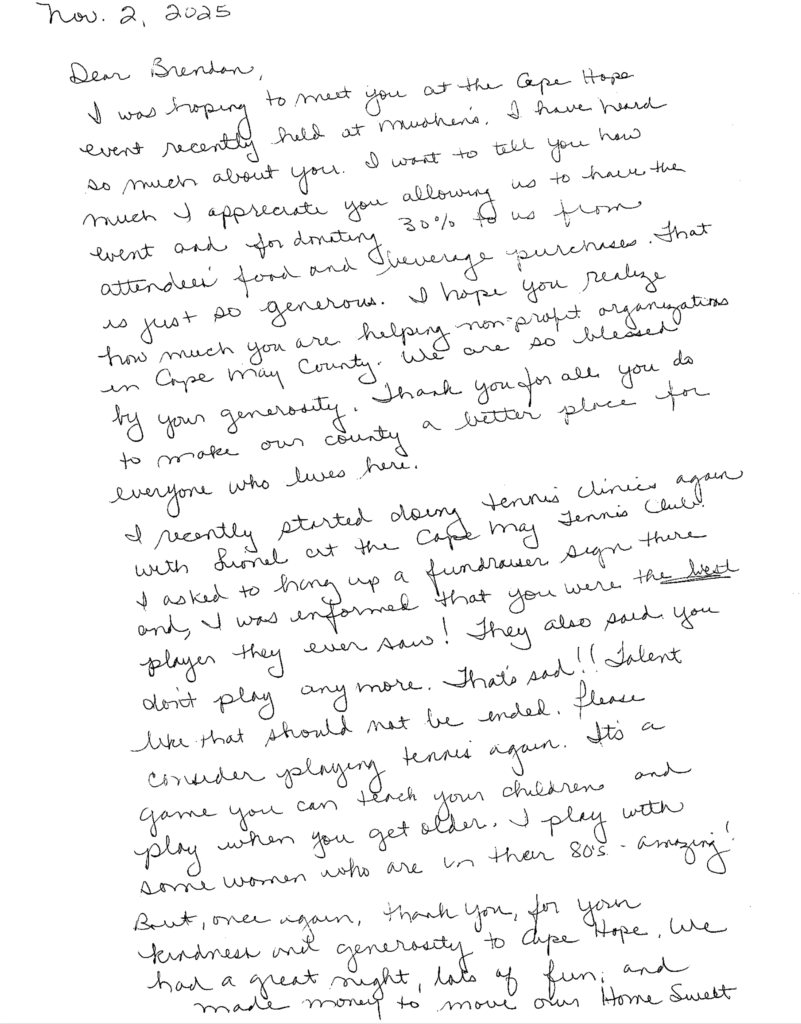 Nov. 2, 2025
Dear Brendan,
I was hoping to meet you at the Cape Hope
event recently held at Mushen's. I have heard
so much about you. I want to tell you how
much I appreciate you allowing us to have the
event and for donating 30% to us from
attendees' food and beverage purchases. That
is just so generous. I hope you realize
how much you are helping non-profit organizations
in Cape May County. We are so blessed
by your generosity. Thank you for all you do
to make our county a better place for
everyone who lives here.
I recently started doing tennis clinics again
with Lionel at the Cape May Tennis Club.
I asked to hang up a fundraiser sign there
and, I was informed that you were the best
player they ever saw! They also said you
don't play any more. That's sad!! Talent
like that should not be ended. Please
consider playing tennis again. It's a
game you can teach your children and
play when you get older. I play with
some women who are in their 80's - amazing!
But, once again, thank you, for your
kindness and generosity to Cape Hope. We
had a great night, lots of fun, and
made money to move our Home Sweet